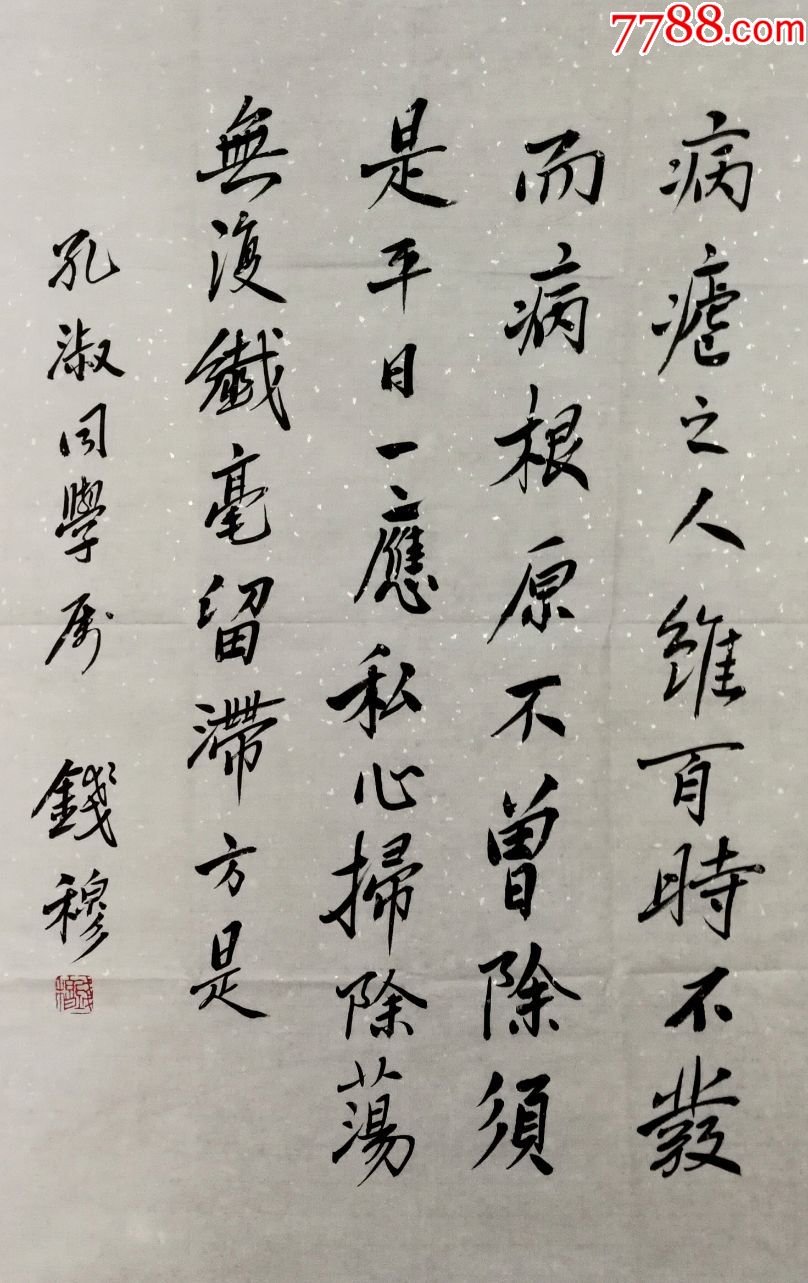 7788.com
病瘧之人維有時不發
而病根原不曾除須
是平日一應私心掃除蕩
無復纖毫留滯方是
孔淑同學屬 錢穆